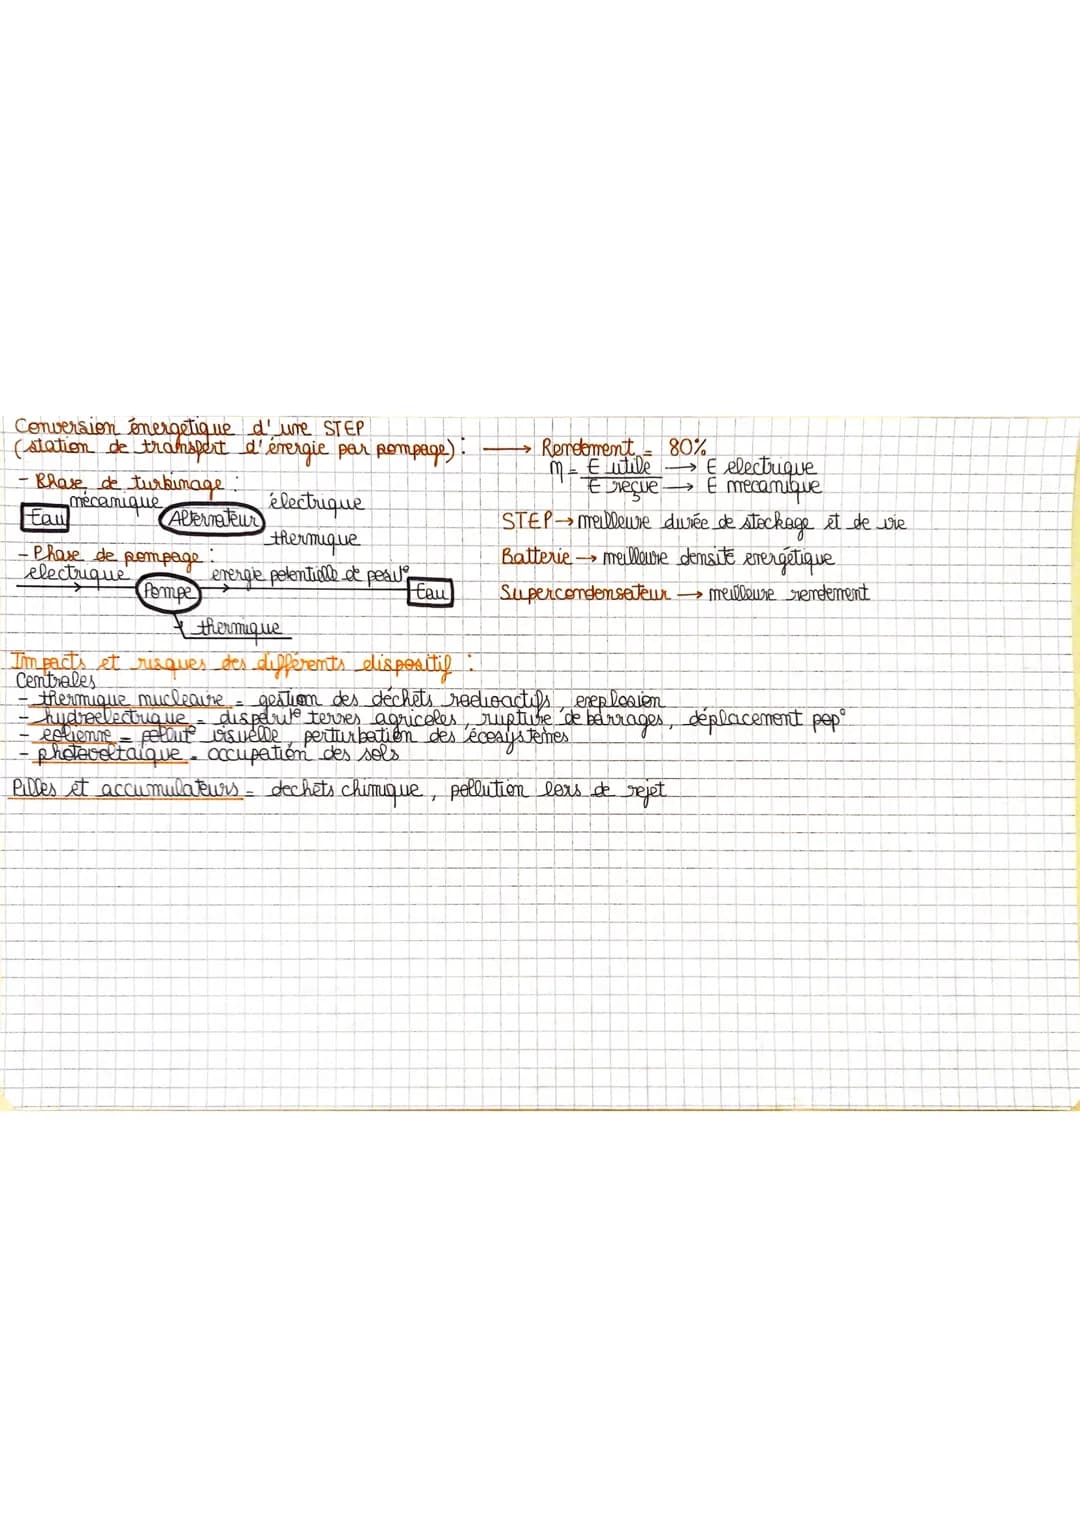 Conversion énergetique d'une STEP
(station de transfert d'énergie par pompage) : → Rendement = 80%
η = E utile → E electrique
E reçue → E mecanique
- Phase de turbinage :
mécanique
électrique
Eau
Alternateur
thermique
STEP → meilleure durée de stockage et de vie
- Phase de pompage :
Batterie → meilleure densité energétique
electrique
energie potentielle de pesate
Pompe
Eau
Supercondensateur → meilleure rendement
thermique
Impacts et risques des différents dispositif :
Centrales
- thermique nucleaire = gestion des déchets radioactifs, explosion
- hydroelectrique = disparute terres agricoles, rupture de barrages, déplacement pop°
- eolienne = pollut° visuelle, perturbation des écosystèmes
- photovoltaïque = occupation des sols
Pilles et accumulateurs = dechets chimique, pollution lors de rejet